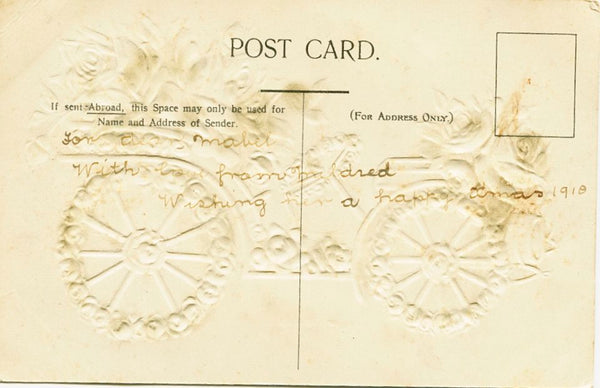 POST CARD.
If sent Abroad, this Space may only be used for
Name and Address of Sender.
(For Address Only.)
For dear Mabel
With love from Mildred
Wishing her a happy Xmas 1910